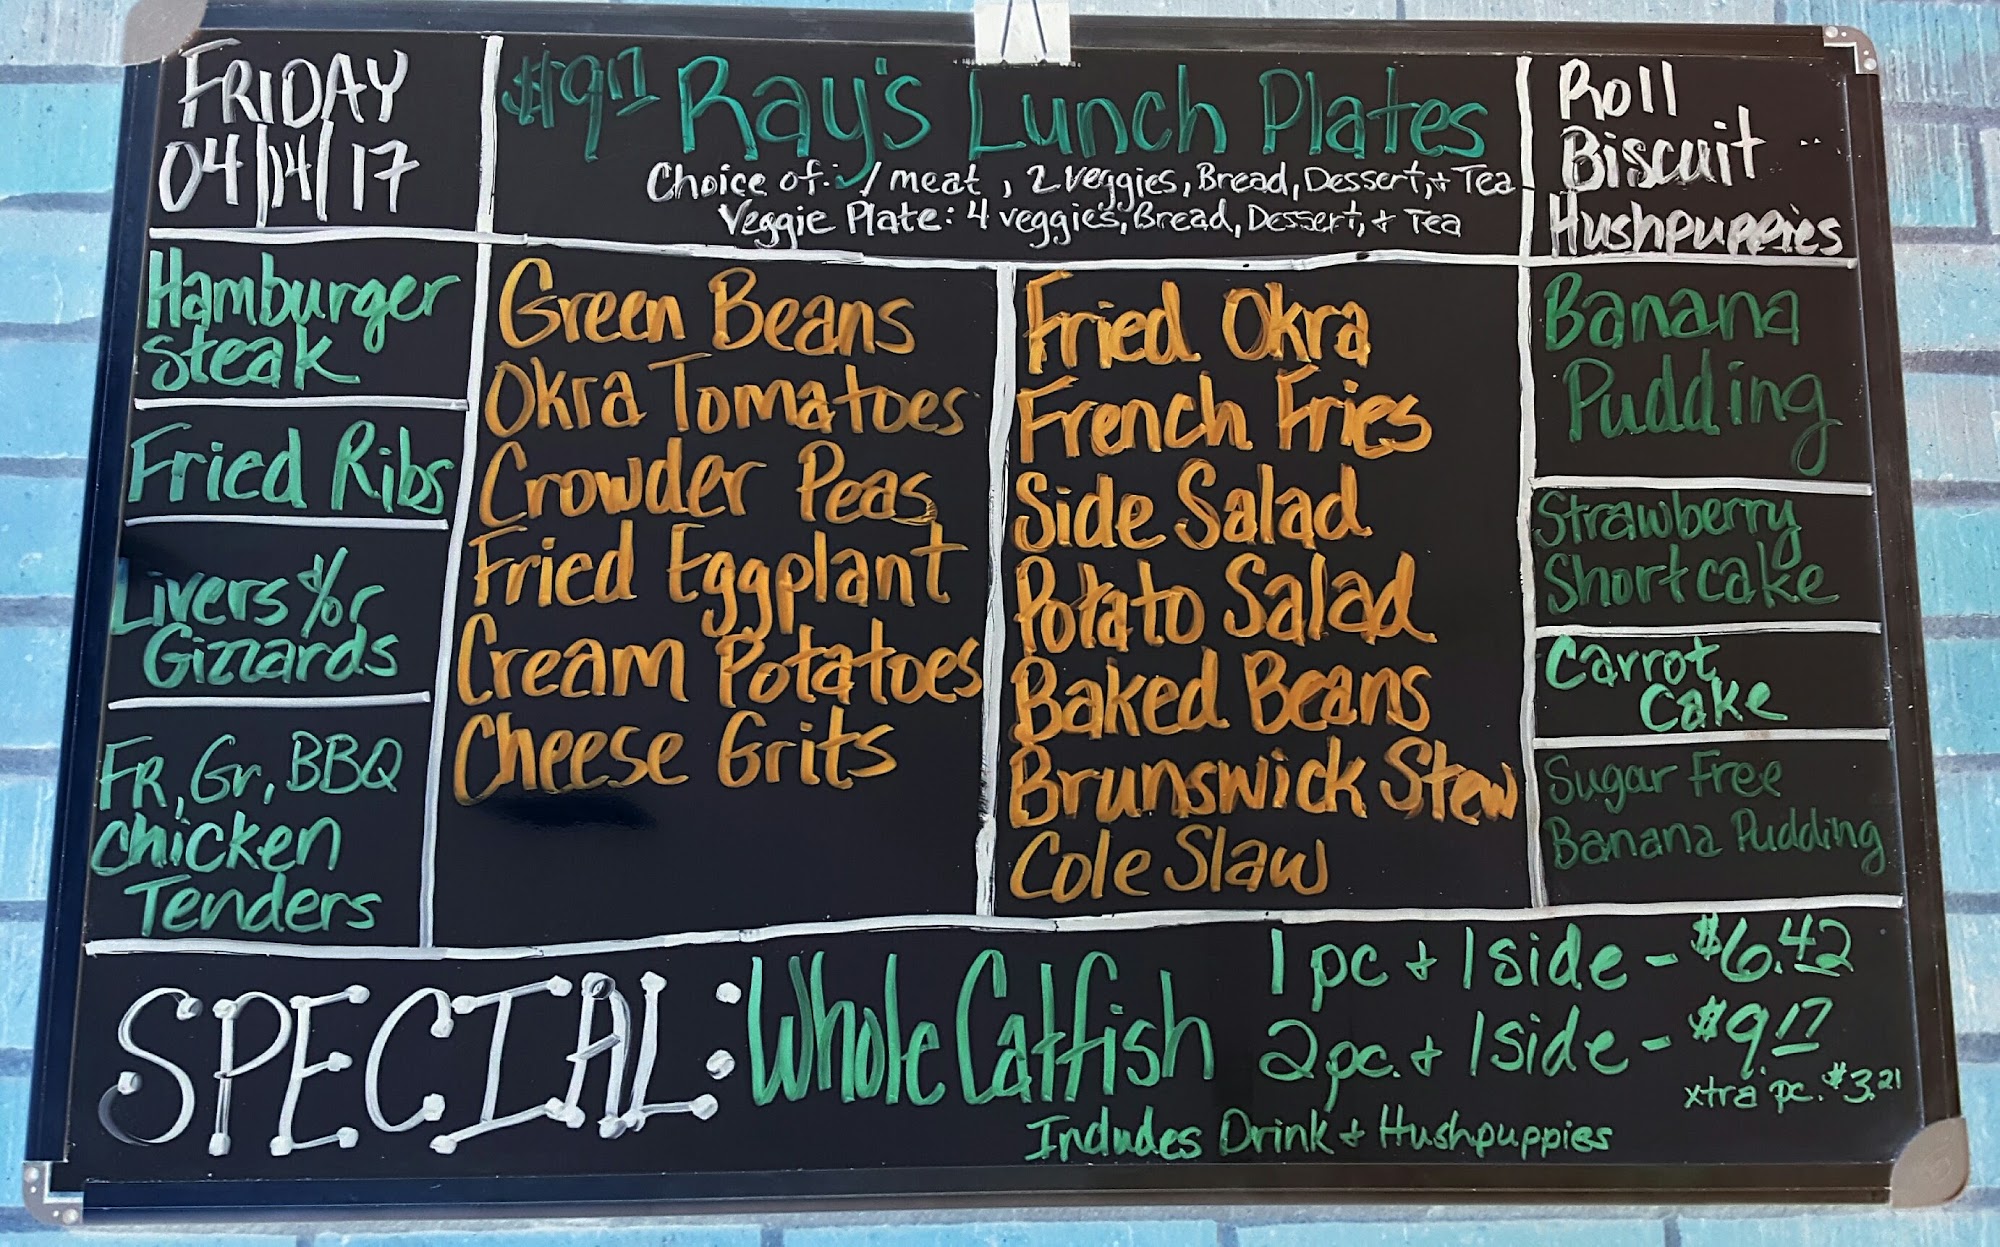 FRIDAY
04/14/17
$9.17 Ray's Lunch Plates
Choice of: 1 meat, 2 veggies, Bread, Dessert, + Tea
Veggie Plate: 4 veggies, Bread, Dessert, + Tea
Roll
Biscuit
Hushpuppies
Hamburger
Steak
Fried Ribs
Livers &/or
Gizzards
FR, Gr, BBQ
Chicken
Tenders
Green Beans
Okra Tomatoes
Crowder Peas
Fried Eggplant
Cream Potatoes
Cheese Grits
Fried Okra
French Fries
Side Salad
Potato Salad
Baked Beans
Brunswick Stew
Cole Slaw
Banana
Pudding
Strawberry
Shortcake
Carrot
Cake
Sugar Free
Banana Pudding
SPECIAL: Whole Catfish
1 pc + 1 side - $6.42
2 pc. + 1 side - $9.17
xtra pc. $3.21
Includes Drink + Hushpuppies